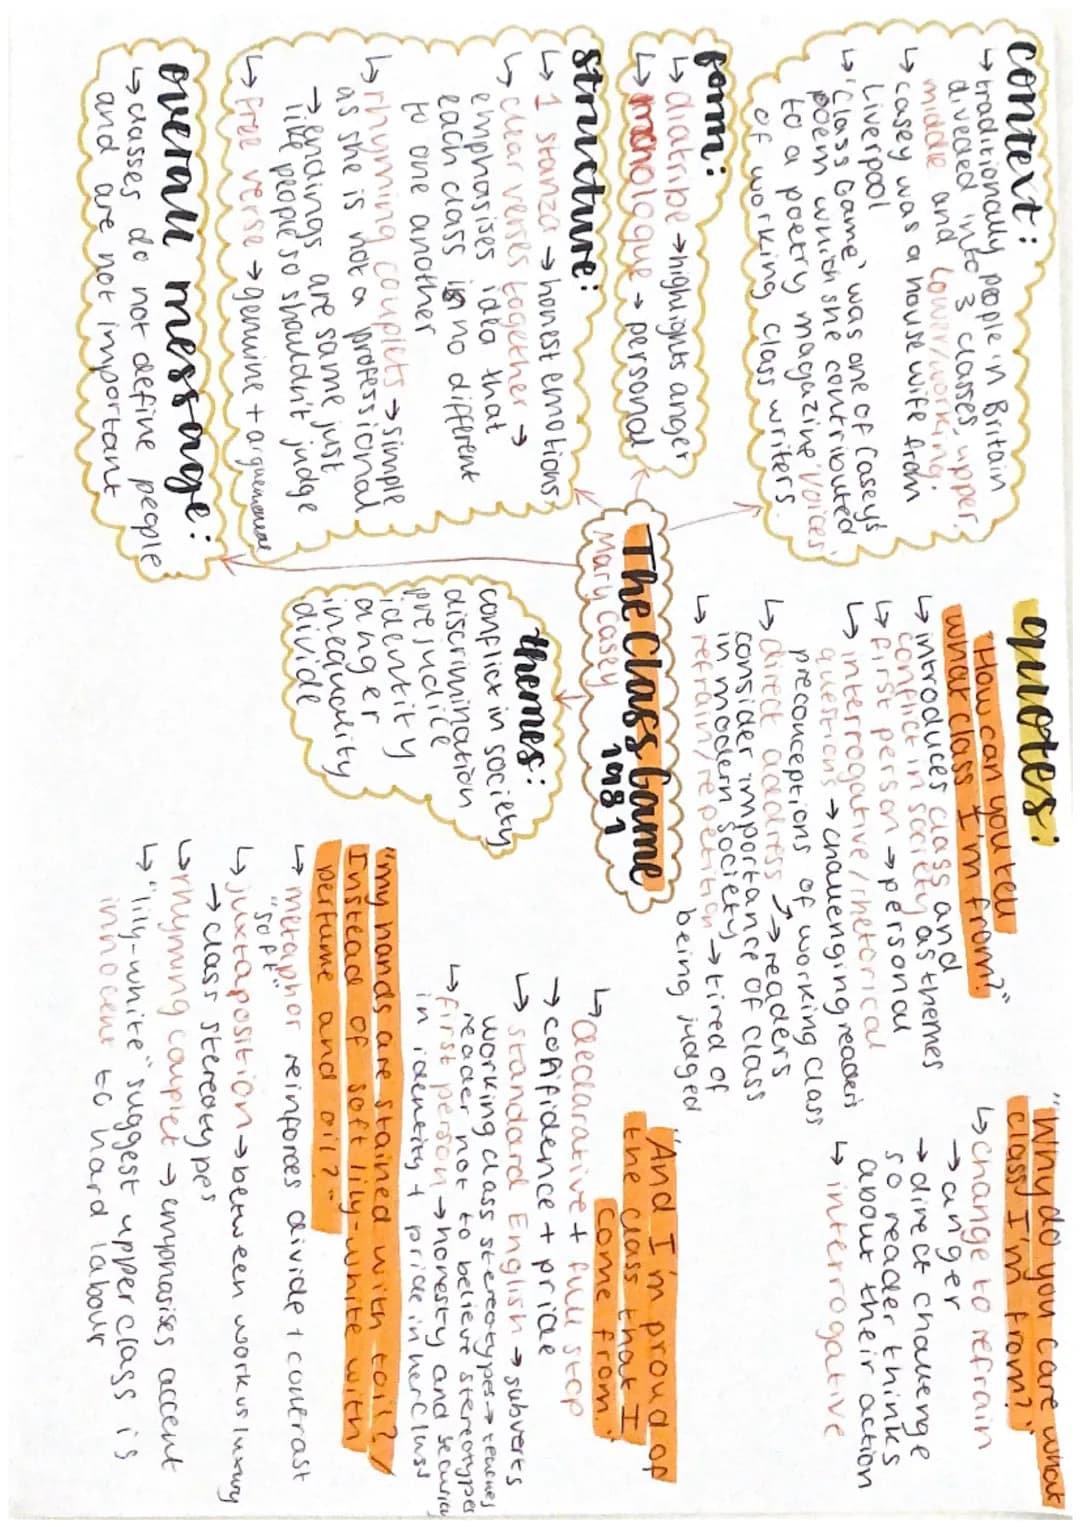 context:
↳ traditionally people in Britain
diveded into 3 classes, upper,
middle and lower/working.
↳ casey was a housewife from
Liverpool
↳ 'Class Game' was one of Caseys
poem which she contributed
to a poetry magazine 'Voices'
of working class writers.
form:
↳ diatribe → highlights anger
↳ monologue → personal
structure:
↳ 1 stanza → honest emotions
↳ clear verses together →
emphasises idea that
each class is no different
to one another
↳ rhyming couplets → simple
as she is not a professional
→ endings are same just
like people so shouldn't judge
↳ free verse → genuine +
overall message:
↳ classes do not define people
and are not important
The Class Game
Mary Casey 1981
themes:
conflict in society
discrimination
prejudice
identity
anger
inequality
divide
quotes:
"How can you tell
what class I'm from?"
↳ introduces class and
conflict in society as themes
↳ first person → personal
↳ interrogative/rhetorical
questions → challenging readers
preconceptions of working class
↳ direct address → readers
consider importance of class
in modern society
↳ refrain/repetition → tired of
being judged
"Why do you care what
class I'm from?"
↳ change to refrain
→ anger
→ direct challenge
so reader thinks
about their action
↳ interrogative
"And I'm proud of
the class that I
come from."
↳ declarative + full stop
→ confidence + pride
↳ standard English → subverts
working class stereotypes → teaches
reader not to believe stereotypes
↳ first person → honesty and
in identity + pride in her class
"my hands are stained with toil?
Instead of soft lily-white with
perfume and oil?"
↳ metaphor reinforces divide + contrast
"soft"
↳ juxtaposition → between work vs luxury
→ class stereotypes
↳ rhyming couplet → emphasises accent
↳ "lily-white" suggest upper class is
innocent to hard labour